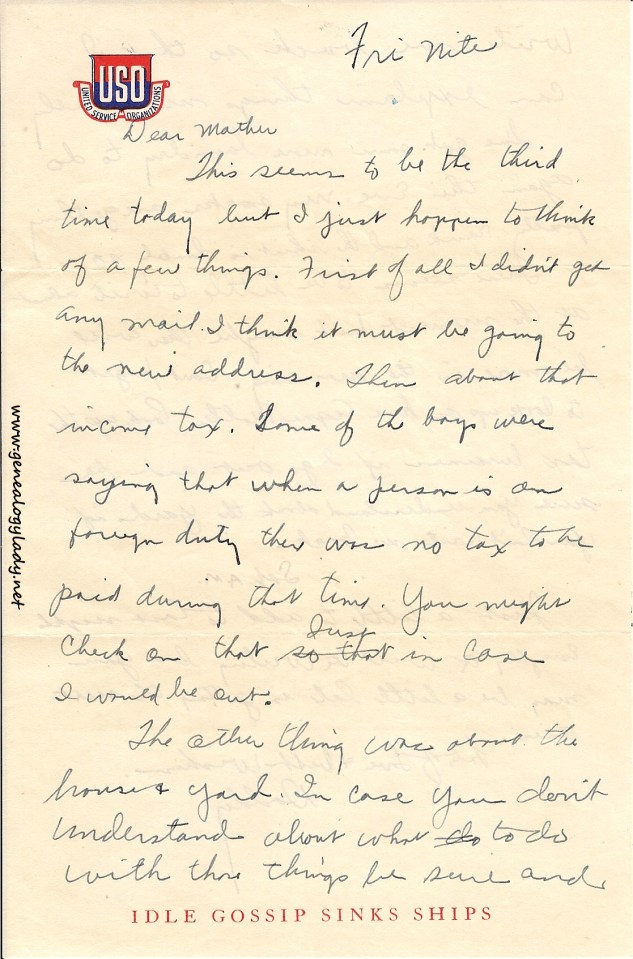 Fri Nite
USO
UNITED SERVICE ORGANIZATIONS
Dear Mother
This seems to be the third
time today but I just happen to think
of a few things. First of all I didn't get
any mail. I think it must be going to
the new address. Then about that
income tax. Some of the boys were
saying that when a person is on
foreign duty ther was no tax to be
paid during that time. You might
Just
check on that so that in case
I would be out.
The other thing was about the
house & yard. In case you don't
understand about what do to do
with thos things be sure and
IDLE GOSSIP SINKS SHIPS
www.genealogylady.net